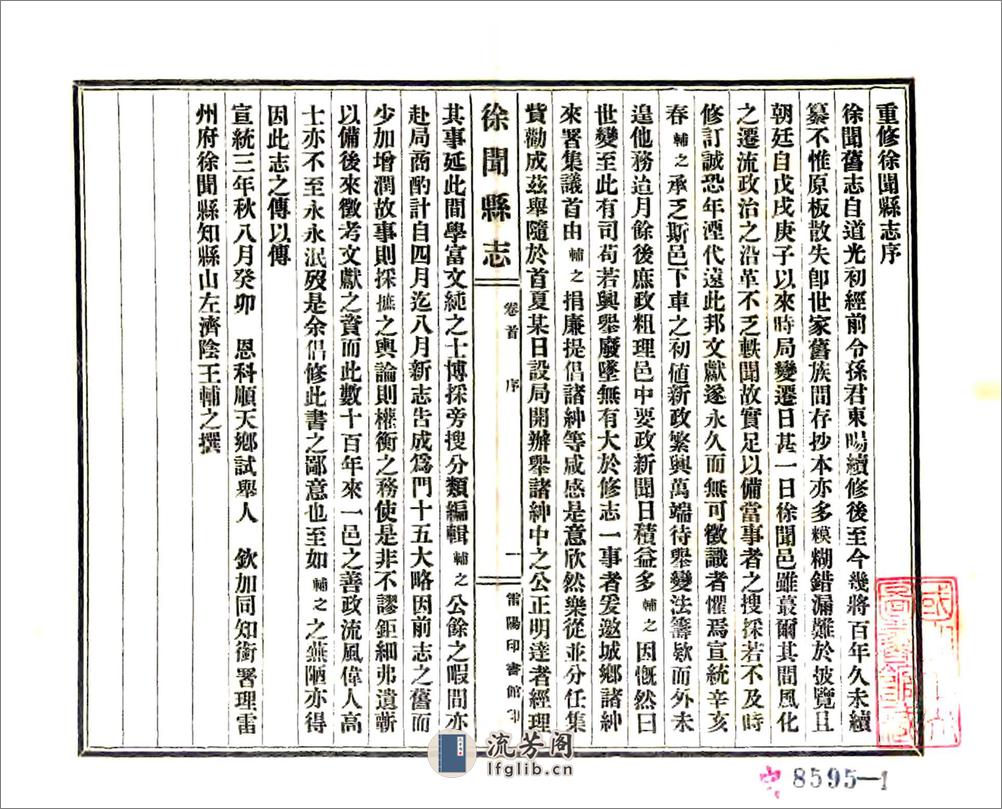 重修徐聞縣志序
徐聞舊志自道光初經前令孫君東暘續修後至今幾將百年久未續
纂不惟原板散失卽世家舊族間存抄本亦多糢糊錯漏難於披覽且
朝廷自戊戌庚子以來時局變遷日甚一日徐聞邑雖蕞爾其間風化
之遷流政治之沿革不乏軼聞故實足以備當事者之搜採若不及時
修訂誠恐年湮代遠此邦文獻遂永久而無可徵識者懼焉宣統辛亥
春輔之承乏斯邑下車之初値新政繁興萬端待舉變法籌欵而外未
遑他務迨月餘後庶政粗理邑中要政新聞日積益多輔之因慨然曰
世變至此有司苟若興舉廢墜無有大於修志一事者爰邀城鄉諸紳
來署集議首由輔之捐廉提倡諸紳等咸感是意欣然樂從並分任集
貲勸成茲舉隨於首夏某日設局開辦舉諸紳中之公正明達者經理
徐聞縣志
卷首
序
一
雷陽印書館印
其事延此間學富文純之士博採旁搜分類編輯輔之公餘之暇間亦
赴局商酌計自四月迄八月新志告成爲門十五大略因前志之舊而
少加增潤故事則採摭之輿論則權衡之務使是非不謬鉅細弗遺蘄
以備後來徵考文獻之資而此數十百年來一邑之善政流風偉人高
士亦不至永永泯歿是余倡修此書之鄙意也至如輔之之蕪陋亦得
因此志之傳以傳
宣統三年秋八月癸卯 恩科順天鄉試舉人 欽加同知銜署理雷
州府徐聞縣知縣山左濟陰王輔之撰
流芳阁
lfglib.cn
8595-1